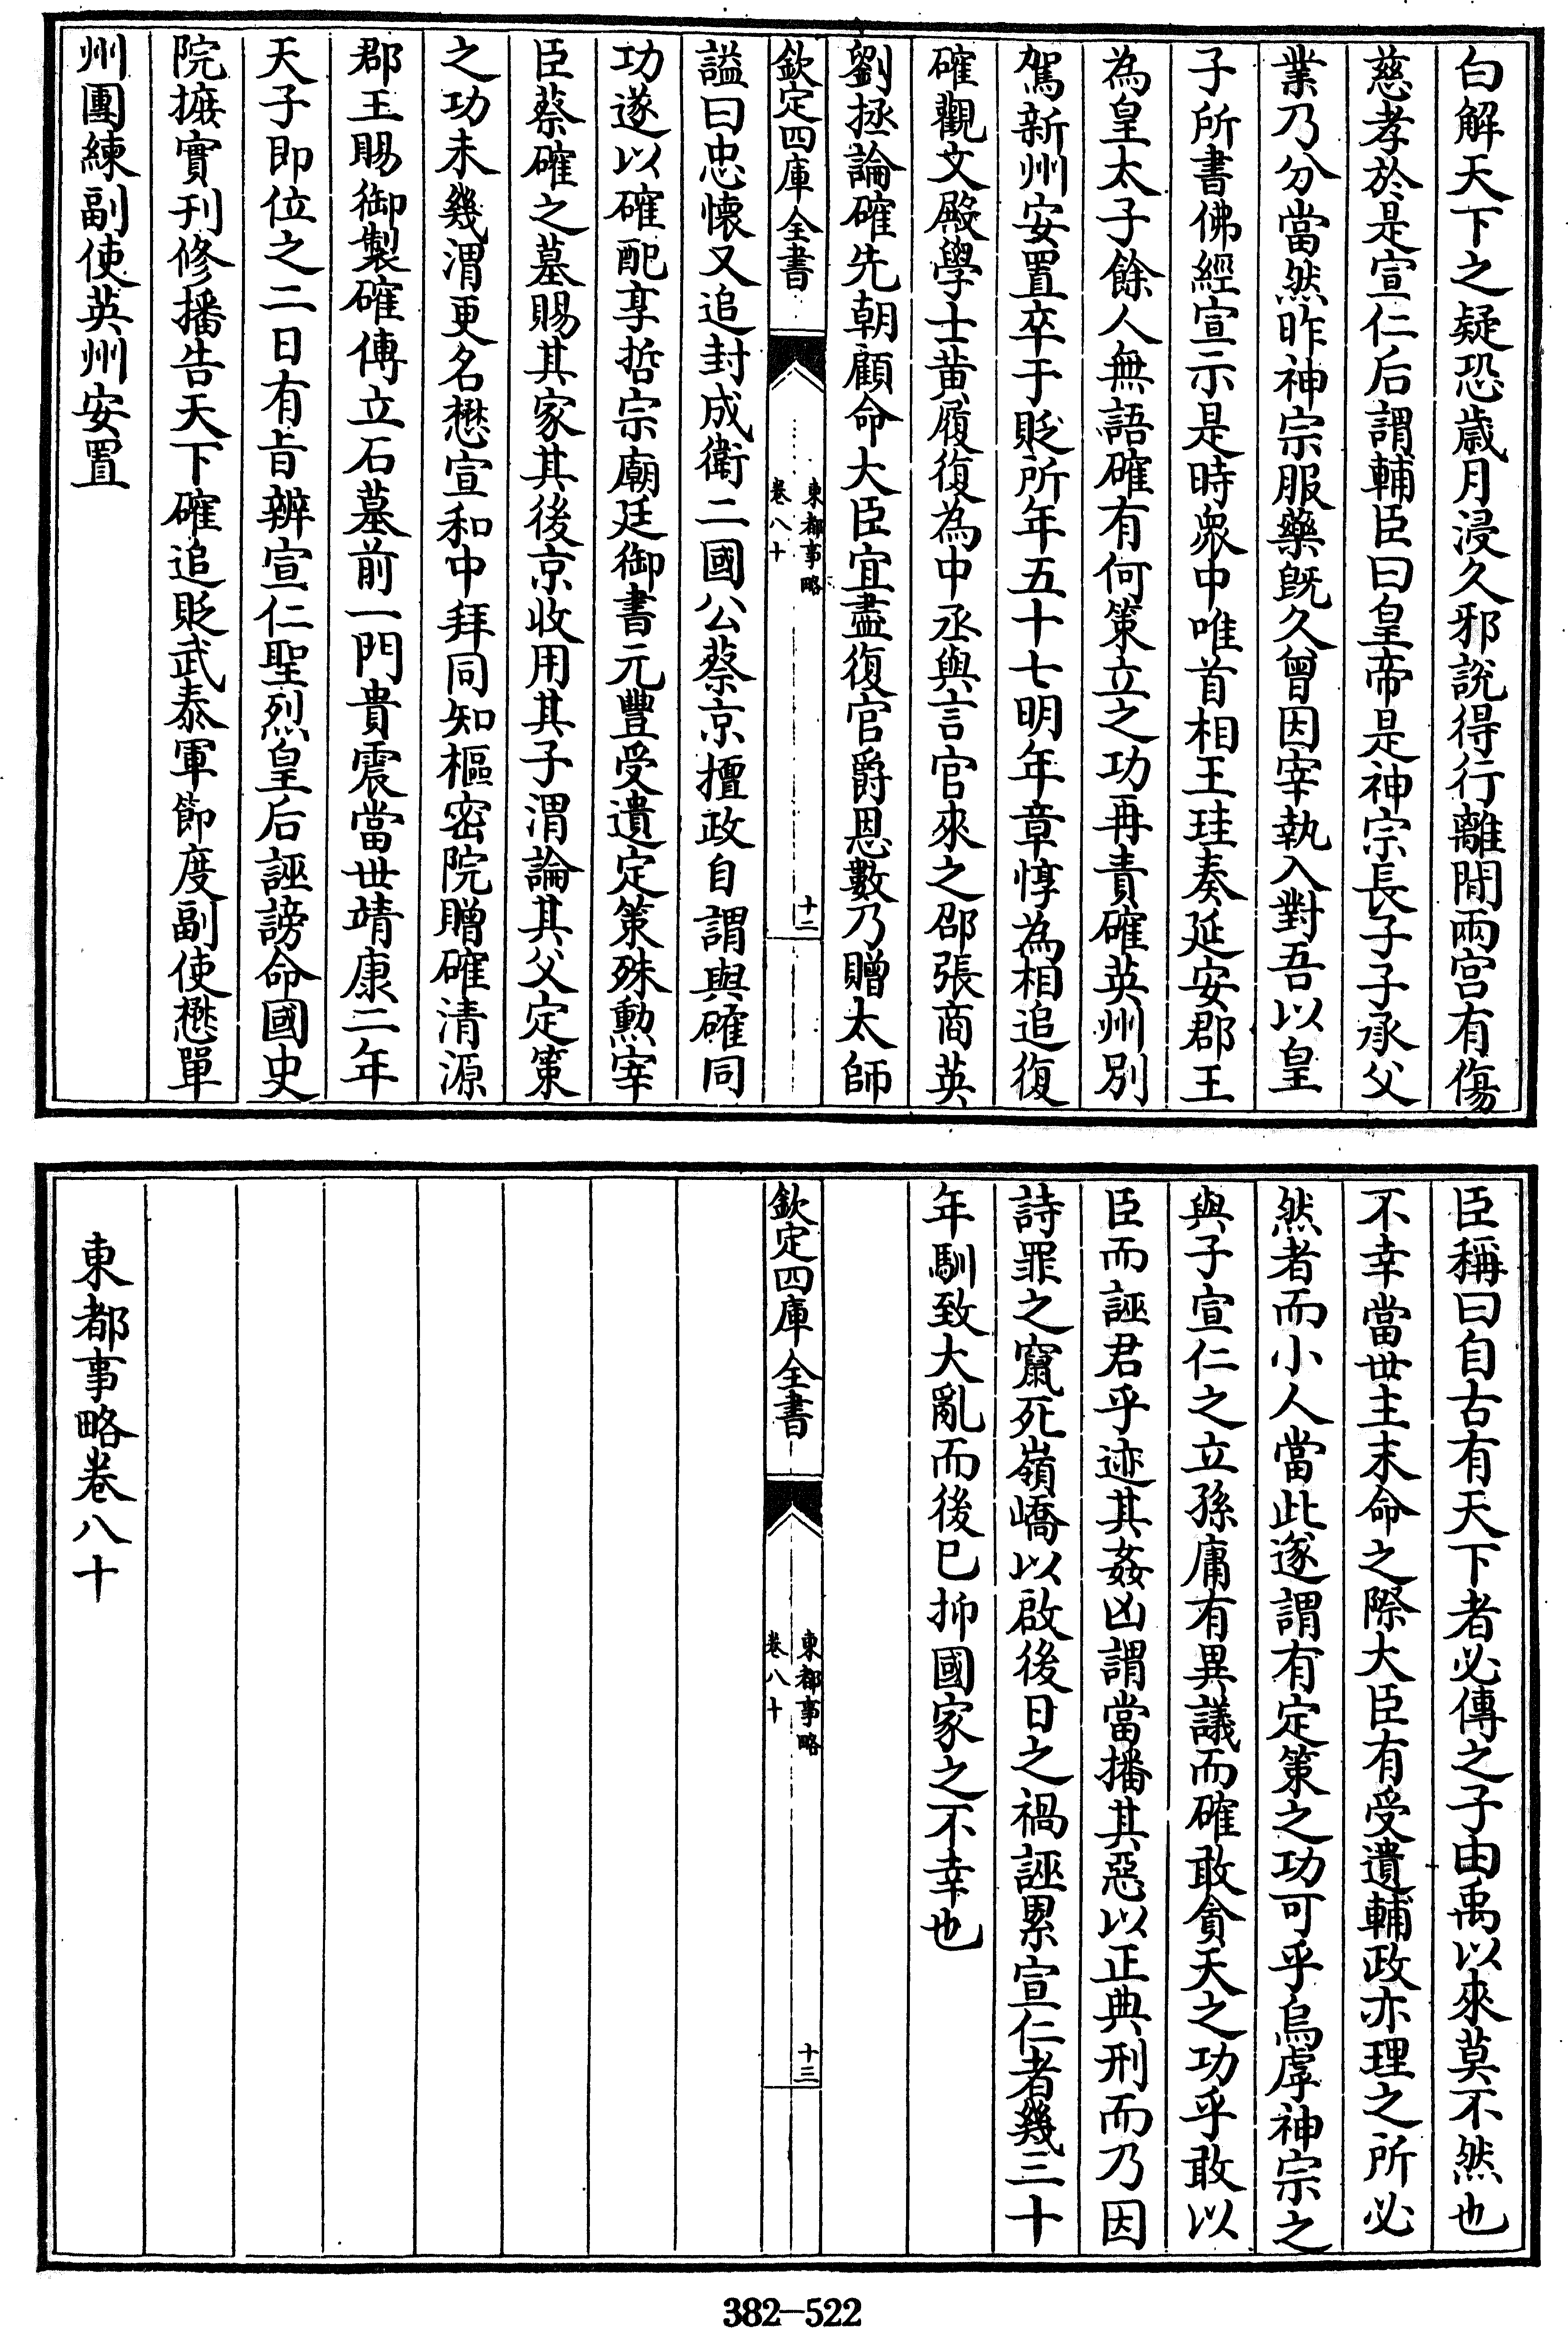 白解天下之疑恐歳月浸久邪說得行離間兩宫有傷
慈孝於是宣仁后謂輔臣曰皇帝是神宗長子子承父
業乃分當然昨神宗服藥旣久曾因宰執入對吾以皇
子所書佛經宣示是時衆中唯首相王珪奏延安郡王
為皇太子餘人無語確有何策立之功再責確英州別
駕新州安置卒于貶所年五十七明年章惇為相追復
確觀文殿學士黄履復為中丞與言官來之邵張商英
劉拯論確先朝顧命大臣宜盡復官爵恩數乃贈太師
欽定四庫全書
東都事略
卷八十
十二
謚曰忠懷又追封成衛二國公蔡京擅政自謂與確同
功遂以確配享哲宗廟廷御書元豐受遺定策殊勲宰
臣蔡確之墓賜其家其後京收用其子渭論其父定策
之功未幾渭更名懋宣和中拜同知樞密院贈確清源
郡王賜御製確傳立石墓前一門貴震當世靖康二年
天子即位之二日有旨辨宣仁聖烈皇后誣謗命國史
院摭實刊修播告天下確追貶武泰軍節度副使懋單
州團練副使英州安置
臣稱曰自古有天下者必傳之子由禹以來莫不然也
不幸當世主末命之際大臣有受遺輔政亦理之所必
然者而小人當此遂謂有定策之功可乎烏虖神宗之
與子宣仁之立孫庸有異議而確敢貪天之功乎敢以
臣而誣君乎迹其姦凶謂當播其惡以正典刑而乃因
詩罪之竄死嶺嶠以啟後日之禍誣累宣仁者幾三十
年馴致大亂而後已抑國家之不幸也
欽定四庫全書
東都事略
卷八十
十三
東都事略卷八十
382-522